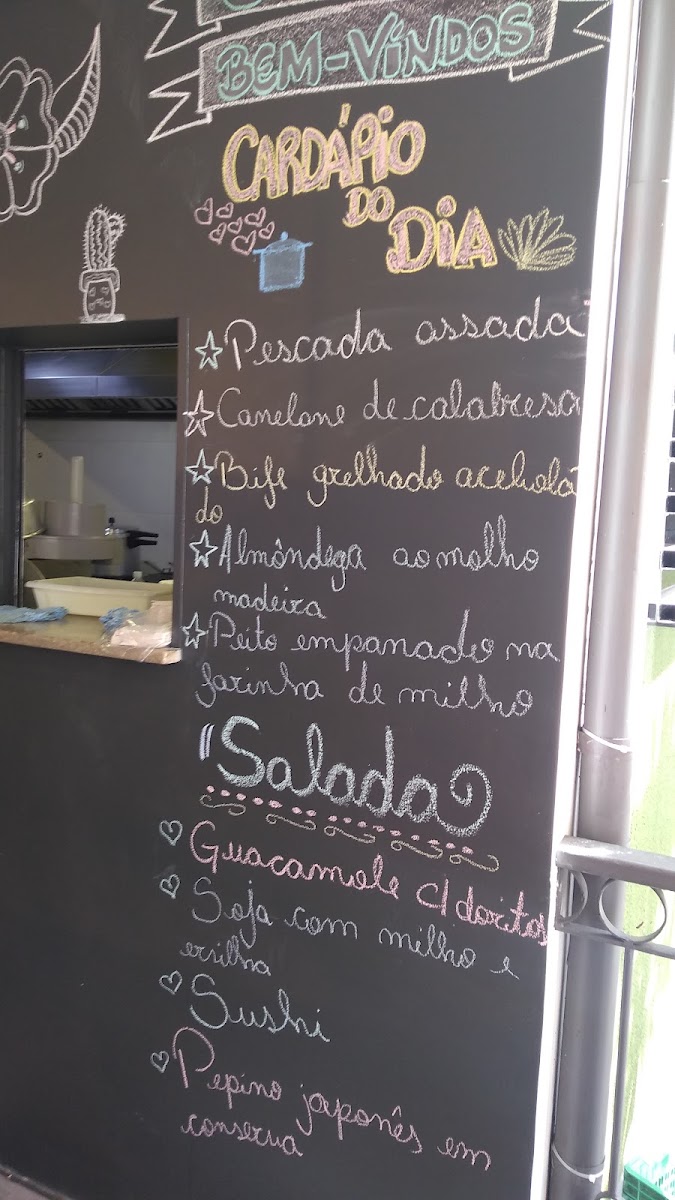 BEM-VINDOS
CARDÁPIO
DO
DIA
Pescada assada
Canelone de calabresa
Bife grelhado acebola
do
Almôndega ao molho
madeira
Peito empanado na
farinha de milho
Salada
Guacamole c/ doritos
Soja com milho e
ervilha
Sushi
Pepino japonês em
conserva